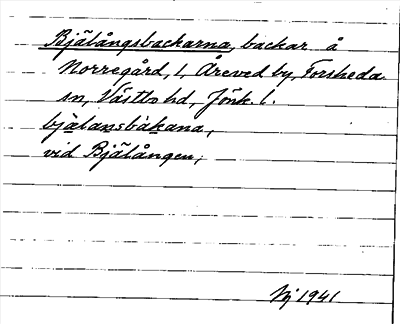 Bjälångsbackarna, backar å
Norregård, 1, Åreved by, Forsheda
sn, Västbo hd, Jönk. l.
bjälaŋsbakana,
vid Bjälången,
Nj 1941